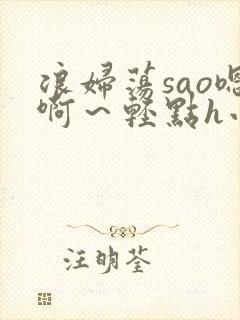 浪婦蕩sao嗯
啊～輕點h
汪明荃